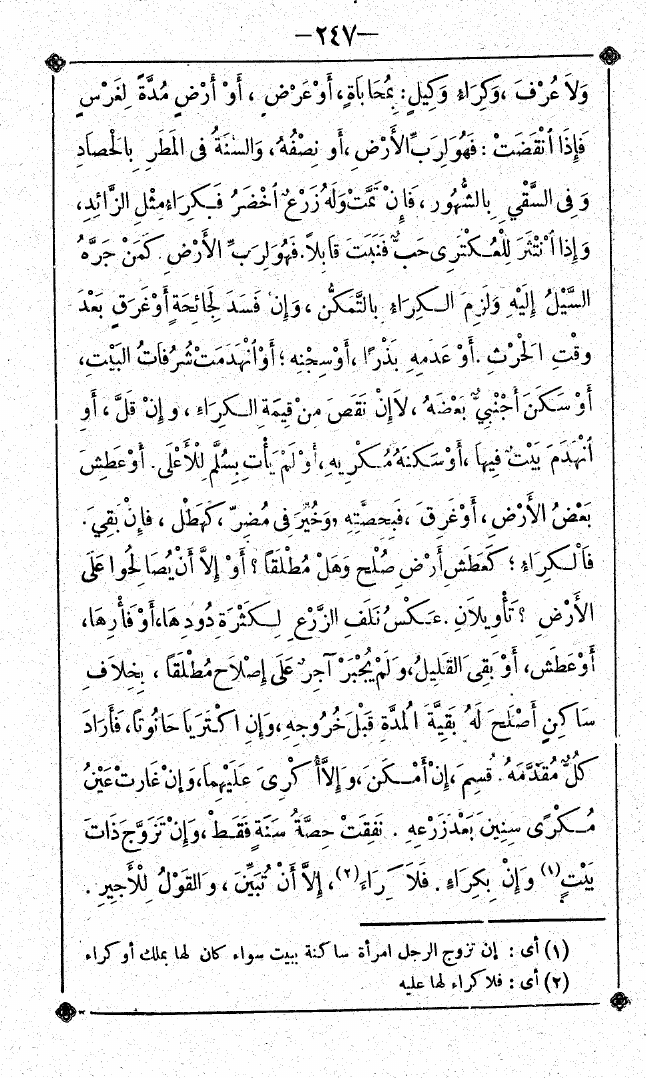 —٢٤٧—
وَلاَ عُرْفَ ، وَكِرَاءُ وَكِيلٍ : بِمُحَابَاةٍ ، أَوْ عَرْضٍ ، أَوْ أَرْضٍ مُدَّةً لِغَرْسٍ
فَإِذَا ٱنْقَضَتْ : فَهُوَ لِرَبِّ الأَرْضِ ، أَو نِصْفُهُ ، وَالسَّنَةُ فى المَطَرِ بِالْحصَادِ
وَفى السَّقْيِ بِالشُّهُورِ ، فَإِنْ تَمَّتْ وَلَهُ زَرْعٌ أَخْضَرُ فَكِرَاءُ مِثْلِ الزَّائِدِ ،
وَإِذَا ٱنْتَثَرَ لِلْمُكْتَرِى حَبٌّ فَنَبَتَ قَابِلاً . فَهُوَ لِرَبِّ الأَرْضِ . كَمَنْ جَرَّهُ
السَّيْلُ إِلَيْهِ وَلَزِمَ الكِرَاءُ بِالتَّمَكُّنِ ، وَإِن فَسَدَ لِجَائِحَةٍ أَوْ غَرَقٍ بَعْدَ
وَقْتِ الحَرْثِ . أَوْ عَدَمِهِ بَذْرًا ، أَوْ سِجْنِهِ ؛ أَوْ ٱنْهَدَمَتْ شُرُفَاتُ البَيْتِ ،
أَوْ سَكَنَ أَجْنَبِيٌّ بَعْضَهُ ، لاَ إِنْ نَقَصَ مِنْ قِيمَةِ الكِرَاءِ ، وَإِنْ قَلَّ ، أَو
ٱنْهَدَمَ بَيْتٌ فِيهَا ، أَوْ سَكَنَهُ مُكْرِيهِ ، أَوْ لَمْ يَأْتِ بِسُلَّمٍ لِلْأَعْلَى . أَوْ عَطِشَ
بَعْضُ الأَرْضِ ، أَوْ غَرِقَ ، فَبِحِصَّتِهِ وَخُيِّرَ فى مُضِرٍّ ، كَهَطْلٍ ، فَإِنْ بَقِيَ .
فَالْكِرَاءُ ؛ كَعَطَشِ أَرْضِ صُلْحٍ وَهَلْ مُطْلَقًا ؟ أَوْ إِلاَّ أَنْ يُصَالِحُوا عَلَى
الأَرْضِ ؟ تَأْوِيلاَنِ . عَكْسُ تَلَفِ الزَّرْعِ لِكَثْرَةِ دُودِهَا ، أَوْ فَأْرِهَا ،
أَوْ عَطَشٍ ، أَوْ بَقِىَ القَلِيلُ ، وَلَمْ يُجْبَرْ آجِرٌ عَلَى إِصْلاَحٍ مُطْلَقًا ، بِخِلاَفِ
سَاكِنٍ أَصْلَحَ لَهُ بَقِيَّةَ المُدَّةِ قَبْلَ خُرُوجِهِ ، وَإِنِ اكْتَرَيَا حَانُوتًا ، فَأَرَادَ
كُلٌّ مُقَدَّمَهُ . قُسِمَ ، إِنْ أَمْكَنَ ، وَ إِلاَّ أُكْرِىَ عَلَيْهِمَا ، وَإِنْ غَارَتْ عَيْنُ
مُكْرًى سِنِينَ بَعْدَ زَرْعِهِ . نَفَقَتْ حِصَّةُ سَنَةٍ فَقَطْ ، وَإِنْ تَزَوَّجَ ذَاتَ
بَيْتٍ (١) وَإِنْ بِكِرَاءٍ . فَلاَ كِرَاءَ (٢) ، إِلاَّ أَنْ تُبَيِّنَ ، وَالقَوْلُ لِلْأَجِيرِ .
(١) أى : إن تزوج الرجل امرأة ساكنة ببيت سواء كان لها بملك أو كراء
(٢) أى : فلا كراء لها عليه